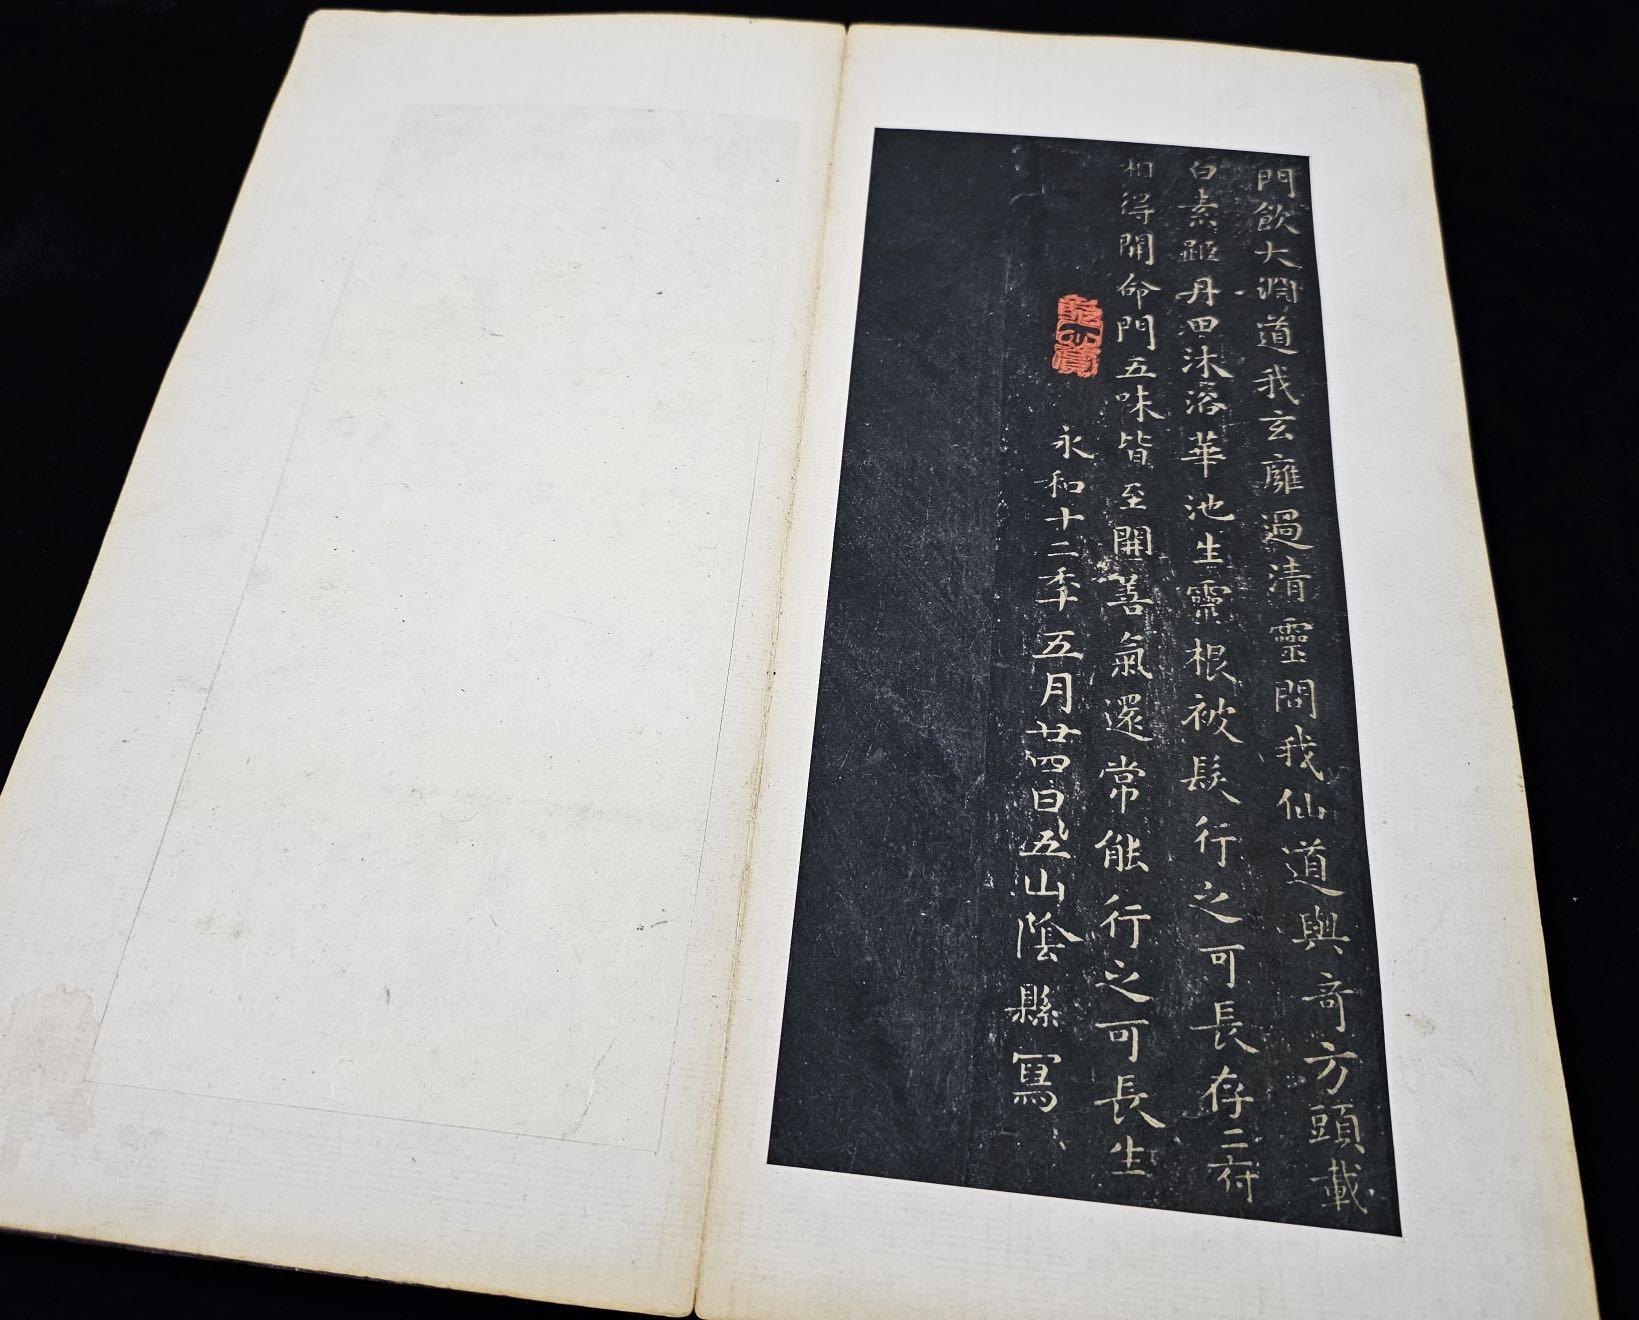 門飲大淵道我玄廱過清靈問我仙道與奇方頭載
白素距丹田沐浴華池生靈根被髮行之可長存二府
相得開命門五味皆至開善氣還常能行之可長生
永和十二年五月廿四日五山陰縣寫